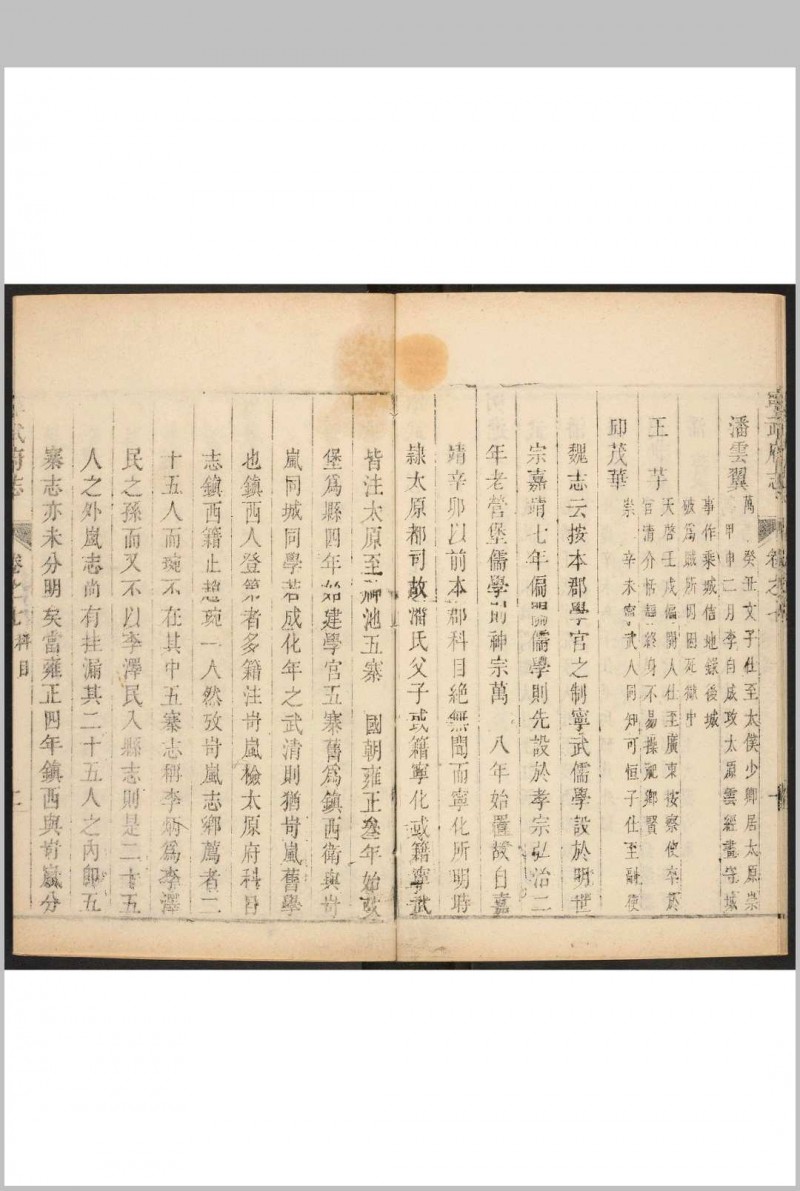 寧武府志
卷之七
潘雲翼
萬 癸丑文子仕至太僕少卿居太原崇
甲申二月李自成攻太原雲經畫守城
事作乘城信地錄後城
破爲賊所囚困死獄中
王芓
天啓壬戌偏關人仕至廣東按察使卒於
官清介恬 終身不易操祀鄉賢
邱茂華
崇 辛未寧武人同知可恒子仕至 使
魏志云按本郡學官之制寧武儒學設於明世
宗嘉靖七年偏關儒學則先設於孝宗弘治二
年老營堡儒學則神宗萬 八年始置故自嘉
靖辛卯以前本郡科目絶無聞而寧化所明時
隸太原都司故潘氏父子或籍寧化或籍寧武
皆注太原至神池五寨 國朝雍正叄年始改
堡爲縣四年始建學官五寨舊爲鎮西衛與岢
嵐同城同學若成化年之武清則猶岢嵐舊學
也鎮西人登第者多籍注岢嵐檢太原府科目
志鎮西籍止趙琬一人然攷岢嵐志鄉薦者二
十五人而琬不在其中五寨志稱李炳爲李澤
民之孫而又不以李澤民入縣志則是二十五
人之外嵐志尚有挂漏其二十五人之內卽五
寨志亦未分明矣當雍正四年鎮西與岢嵐分
武府志
卷之七 科目
二